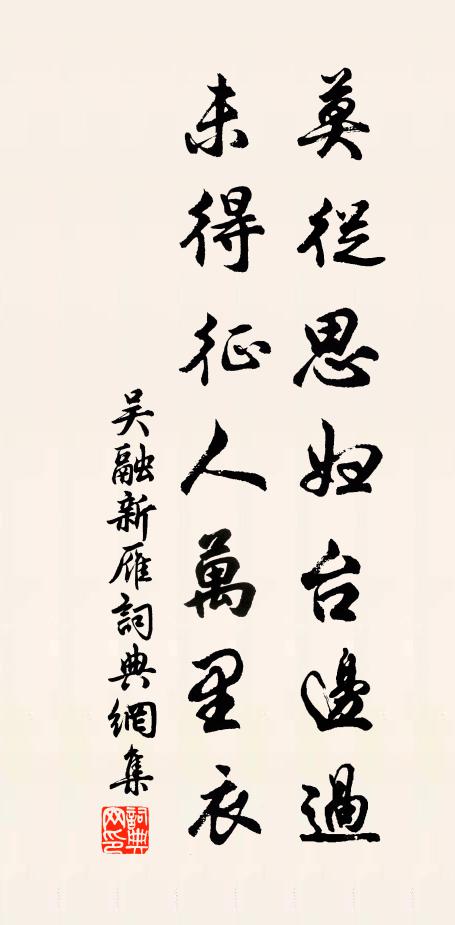 莫從思婦台邊過
未得征人萬里衣
吳融新雁詞典網集
詞典網印